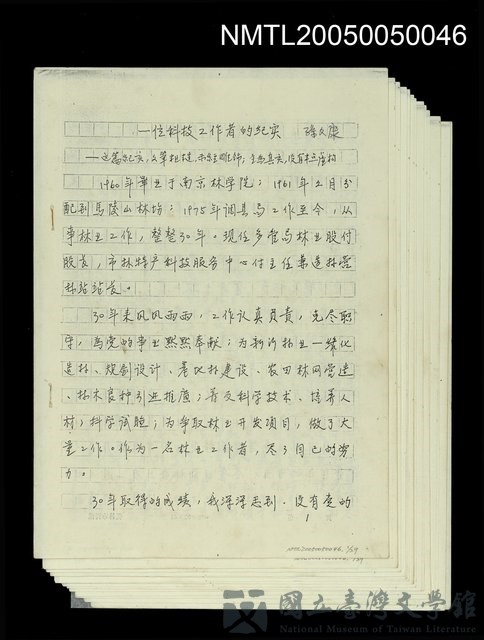 NMTL20050050046
一位科技工作者的纪实
1960年毕业于南京林学院；1961年2月分
配到马陵山林场；1975年调县局工作至今，从
事林业工作，整整30年。现任多管局林业股付
股长，市林特产科技服务中心付主任兼造林营
林站站长。
30年来风风雨雨，工作认真负责，克尽职
守，为党的事业默默奉献；为新沂林业一绿化
造林、规划设计、基地林建设、农田林网营造、
林木良种引进推广；普及科学技术、培养人
材；科学试验；为争取林业开发项目，做了大
量工作。作为一名林业工作者，尽了自己的努
力。
30年取得的成绩，我深深感到，没有党的
1
NMTL20050050046
國立臺灣文學館
National Museum of Taiwan Literature